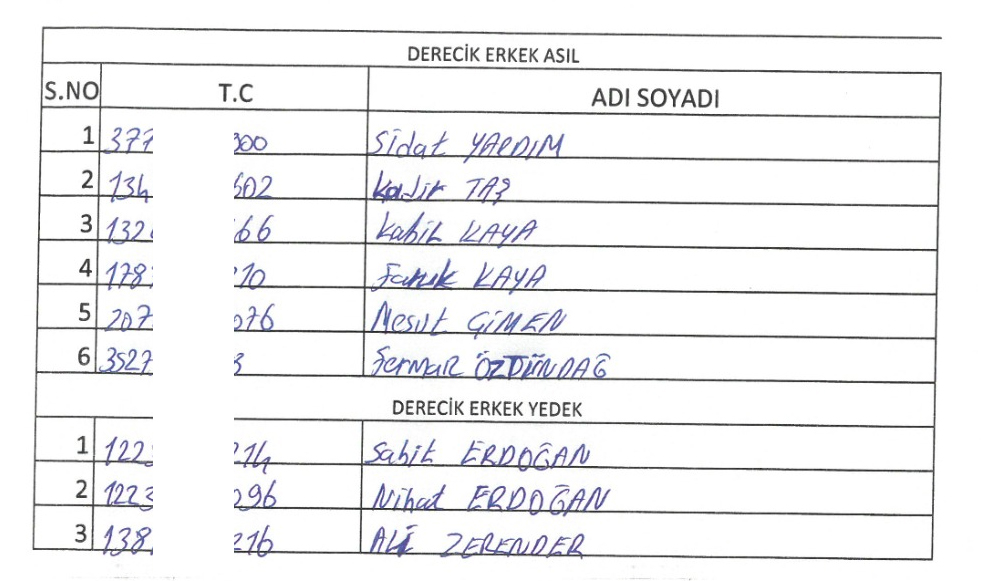 DERECİK ERKEK ASIL
S.NO T.C ADI SOYADI
1 377 300 Sidat YARDIM
2 134 602 Kadir TAŞ
3 132 66 Kabil KAYA
4 178 10 Faruk KAYA
5 207 076 Mesut ÇİMEN
6 3527 3 Ferman ÖZDÜNDAĞ
DERECİK ERKEK YEDEK
1 122 214 Sabit ERDOĞAN
2 1223 296 Nihat ERDOĞAN
3 138 216 ALİ ZERENDER